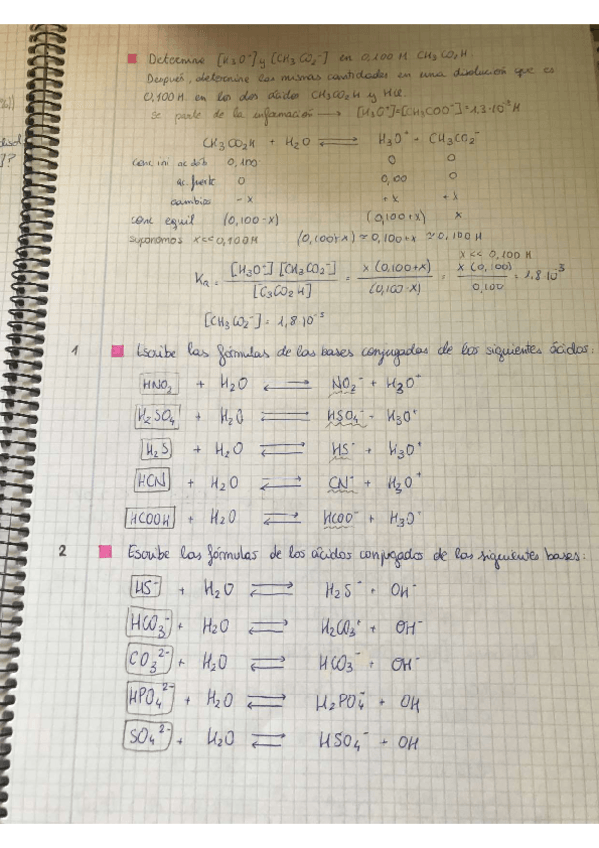 Determine [H3O⁺] y [CH3CO2⁻] en 0,100 M CH3CO2H.
Después, determine las mismas cantidades en una disolución que es
0,100 M en los dos ácidos CH3CO2H y HCl.
se parte de la información → [H3O⁺]=[CH3COO⁻]=1,3·10⁻³ M
CH3CO2H + H2O ⇌ H3O⁺ + CH3CO2⁻
conc. ini ac. déb 0,100 0 0
ac. fuerte 0 0,100 0
cambios -x +x +x
conc equil (0,100-x) (0,100+x) x
suponemos x<<0,100M (0,100-x) ≃ 0,100+x ≃ 0,100 M
x << 0,100 M
Ka = [H3O⁺][CH3CO2⁻] / [C3CO2H] = x(0,100+x) / (0,100-x) = x(0,100) / 0,100 = 1,8·10⁻⁵
[CH3CO2⁻] = 1,8·10⁻⁵
1 Escribe las fórmulas de las bases conjugadas de los siguientes ácidos:
HNO2 + H2O ⇌ NO2⁻ + H3O⁺
H2SO4 + H2O ⇌ HSO4⁻ + H3O⁺
H2S + H2O ⇌ HS⁻ + H3O⁺
HCN + H2O ⇌ CN⁻ + H3O⁺
HCOOH + H2O ⇌ HCOO⁻ + H3O⁺
2 Escribe las fórmulas de los ácidos conjugados de las siguientes bases:
HS⁻ + H2O ⇌ H2S⁻ + OH⁻
HCO3⁻ + H2O ⇌ H2CO3⁺ + OH⁻
CO3²⁻ + H2O ⇌ HCO3⁻ + OH⁻
HPO4²⁻ + H2O ⇌ H2PO4⁻ + OH
SO4²⁻ + H2O ⇌ HSO4⁻ + OH